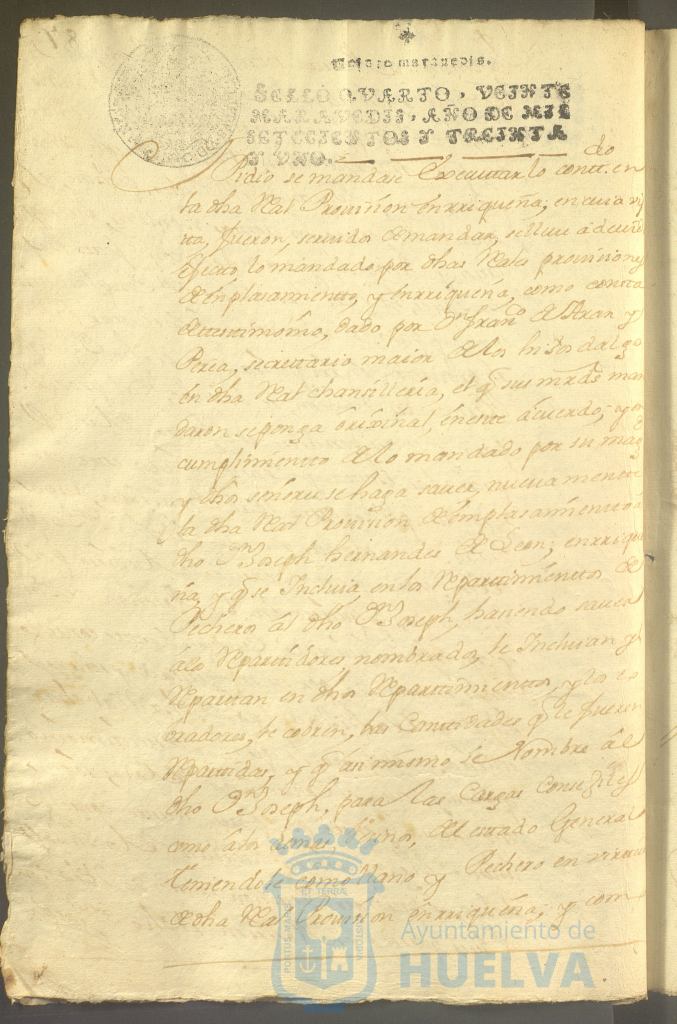 Veinte maravedis.
SELLO QVARTO, VEINTE
MARAVEDIS, AÑO DE MIL
SETECIENTOS Y TREINTA
Y VNO.
Pidio se mandase Executar lo contdo. en
la dha Real Provision enrriqueña, en cuia vis
ta, fueron, seruidos de mandar, se lleue a deuido
efecto lo mandado por dhas Rales prouisiones
de enplasamiento, y enrriqueña, como consta
de testimonio, dado por Dn. Franco. de
secrettario maior de los hijos dalgo
en dha Real chansilleria, el q sus mrds man
daron se ponga orixinal, en este acuerdo, y en
cumplimiento de lo mandado por su magd
y dhos señores se haga sauer, nueuamente
la dha Real Prouision de emplasamiento a
dho Dn. Joseph hernandes de Leon, enrrique
ña, y q se Incluia, en los Repartimientos de
Pecheros al dho Dn. Joseph, hauiendo sauer
a los Repartidores, nombrados, le Incluian y
Repartan en dhos Repartimientos, y los co
bradores, le cobren, las Canttidades q le fueren
Repartidas, y q asi mismo se Nombre al
dho Dn. Joseph, para las Cargas Consegiles
como a los demas Vesinos, del estado General
teniendole como llano y Pechero en virtud
de dha Real Prouision enrriqueña, y com
PORTUS MARIS
ET TERRAE
CUSTODIA
Ayuntamiento de
HUELVA